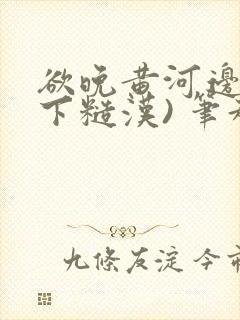 欲晚黄河邊
下糙漢) 筆
九條友淀 今